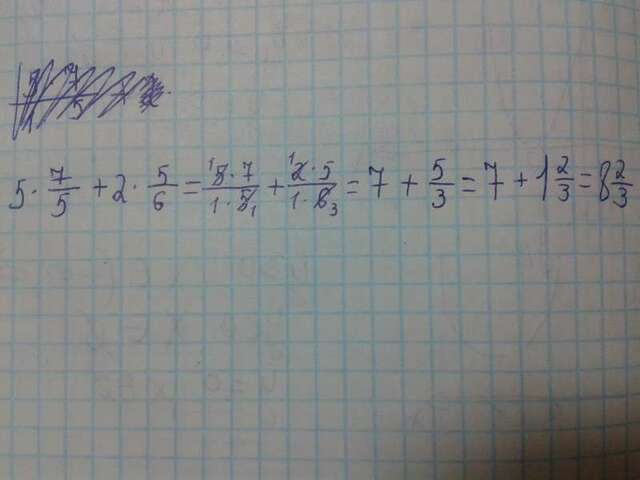 5 · 7/5 + 2 · 5/6 = 5 · 7 / 1 · 5 + 2 · 5 / 1 · 6 = 7 + 5/3 = 7 + 1 2/3 = 8 2/3